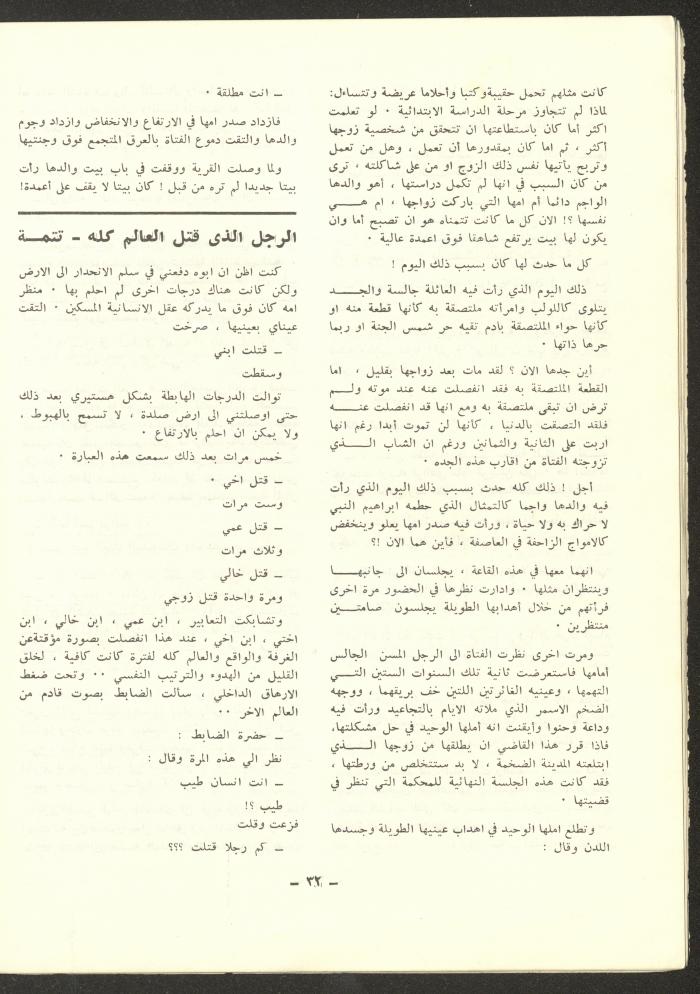 كانت مثلهم تحمل حقيبة وكتبا وأحلاما عريضة وتتساءل:
لماذا لم تتجاوز مرحلة الدراسة الابتدائية ٠ لو تعلمت
اكثر أما كان باستطاعتها ان تتحقق من شخصية زوجها
أكثر ، ثم اما كان بمقدورها أن تعمل ، وهل من تعمل
وتربح يأتيها نفس ذلك الزوج او من على شاكلته ، ترى
من كان السبب في انها لم تكمل دراستها ، أهو والدها
الواجم دائما أم امها التي باركت زواجها ، ام هـــي
نفسها ؟! الان كل ما كانت تتمناه هو ان تصبح أما وان
يكون لها بيت يرتفع شاهقا فوق اعمدة عالية ٠
كل ما حدث لها كان بسبب ذلك اليوم !
ذلك اليوم الذي رأت فيه العائلة جالسة والجـــد
يتلوى كاللولب وامرأته ملتصقة به كأنها قطعة منه او
كأنها حواء الملتصقة بادم تقيه حر شمس الجنة او ربما
حرها ذاتها ٠
أين جدها الان ؟ لقد مات بعد زواجها بقليل ، اما
القطعة الملتصقة به فقد انفصلت عنه عند موته ولـــم
ترض ان تبقى ملتصقة به ومع انها قد انفصلت عنـــه
فلقد التصقت بالدنيا ، كأنها لن تموت أبدا رغم انها
اربت على الثانية والثمانين ورغم ان الشاب الـــذي
تزوجته الفتاة من اقارب هذه الجده ٠
أجل ! ذلك كله حدث بسبب ذلك اليوم الذي رأت
فيه والدها واجما كالتمثال الذي حطمه ابراهيم النبي
لا حراك به ولا حياة ، ورأت فيه صدر امها يعلو وينخفض
كالامواج الزاحفة في العاصفة ، فأين هما الان ؟!
انهما معها في هذه القاعة ، يجلسان الى جانبهـــا
وينتظران مثلها ٠ وادارت نظرها في الحضور مرة اخرى
فرأتهم من خلال أهدابها الطويلة يجلسون صامتـــين
منتظرين ٠
ومرت اخرى نظرت الفتاة الى الرجل المسن الجالس
أمامها فاستعرضت ثانية تلك السنوات الستين التـــي
التهمها ، وعينيه الغائرتين اللتين خف بريقهما ، ووجهه
الضخم الاسمر الذي ملاته الايام بالتجاعيد ورأت فيه
وداعة وحنوا وأيقنت انه أملها الوحيد في حل مشكلتها،
فاذا قرر هذا القاضي ان يطلقها من زوجها الـــذي
ابتلعته المدينة الضخمة ، لا بد ستتخلص من ورطتها ،
فقد كانت هذه الجلسة النهائية للمحكمة التي تنظر في
قضيتها ٠
وتطلع املها الوحيد في اهداب عينيها الطويلة وجسدها
اللدن وقال :
ــ انت مطلقة ٠
فازداد صدر امها في الارتفاع والانخفاض وازداد وجوم
والدها والتقت دموع الفتاة بالعرق المتجمع فوق وجنتيها
ولما وصلت القرية ووقفت في باب بيت والدها رأت
بيتا جديدا لم تره من قبل ! كان بيتا لا يقف على أعمدة!
الرجل الذى قتل العالم كله - تتمـــة
كنت اظن ان ابوه دفعني في سلم الانحدار الى الارض
ولكن كانت هناك درجات اخرى لم احلم بها ٠ منظر
امه كان فوق ما يدركه عقل الانسانية المسكين ٠ التقت
عيناي بعينيها ، صرخت
ــ قتلت ابني
وسقطت
توالت الدرجات الهابطة بشكل هستيري بعد ذلك
حتى اوصلتني الى ارض صلدة ، لا تسمح بالهبوط ،
ولا يمكن ان احلم بالارتفاع ٠
خمس مرات بعد ذلك سمعت هذه العبارة ٠
ــ قتل اخي ٠
وست مرات
ــ قتل عمي
وثلاث مرات
ــ قتل خالي
ومرة واحدة قتل زوجي
وتشابكت التعابير ، ابن عمي ، ابن خالي ، ابن
اختي ، ابن اخي ، عند هذا انفصلت بصورة مؤقتة عن
الغرفة والواقع والعالم كله لفترة كانت كافية ، لخلق
القليل من الهدوء والترتيب النفسي ٠٠ وتحت ضغط
الارهاق الداخلي ، سألت الضابط بصوت قادم من
العالم الاخر ٠٠
ــ حضرة الضابط :
نظر الي هذه المرة وقال :
ــ انت انسان طيب
طيب ؟!
فزعت وقلت
ــ كم رجلا قتلت ؟؟؟
– ٣٢ –